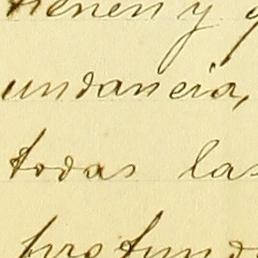 tienen y
undancia,
todas las
profund